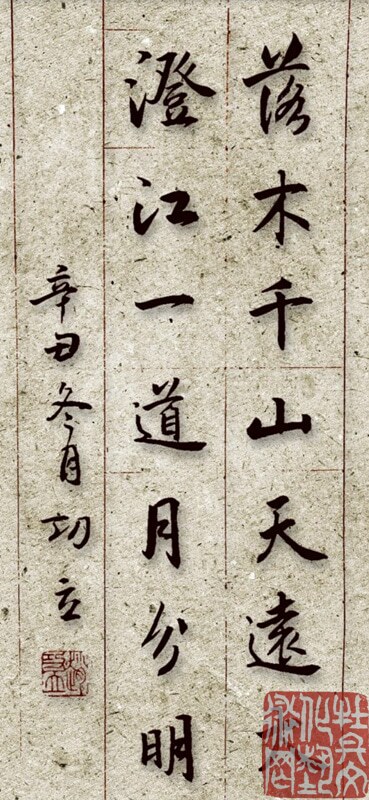 落木千山天遠大
澄江一道月分明
辛丑冬月功立